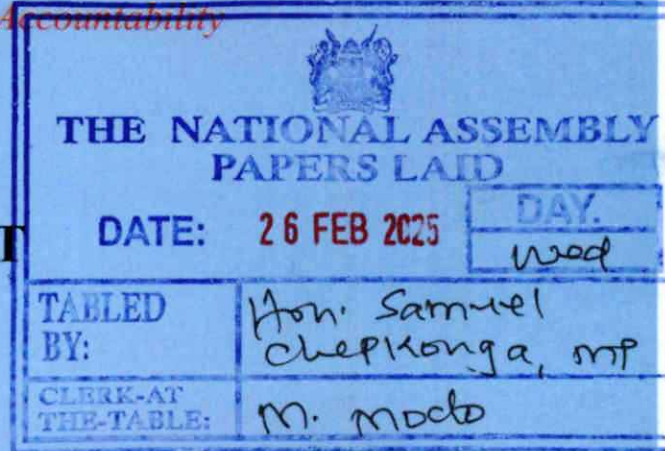 Accountability
THE NATIONAL ASSEMBLY
PAPERS LAID
DATE: 26 FEB 2025
DAY.
Wed
TABLED BY:
Hon. Samuel
Chepkonga, MP
CLERK-AT THE-TABLE:
M.